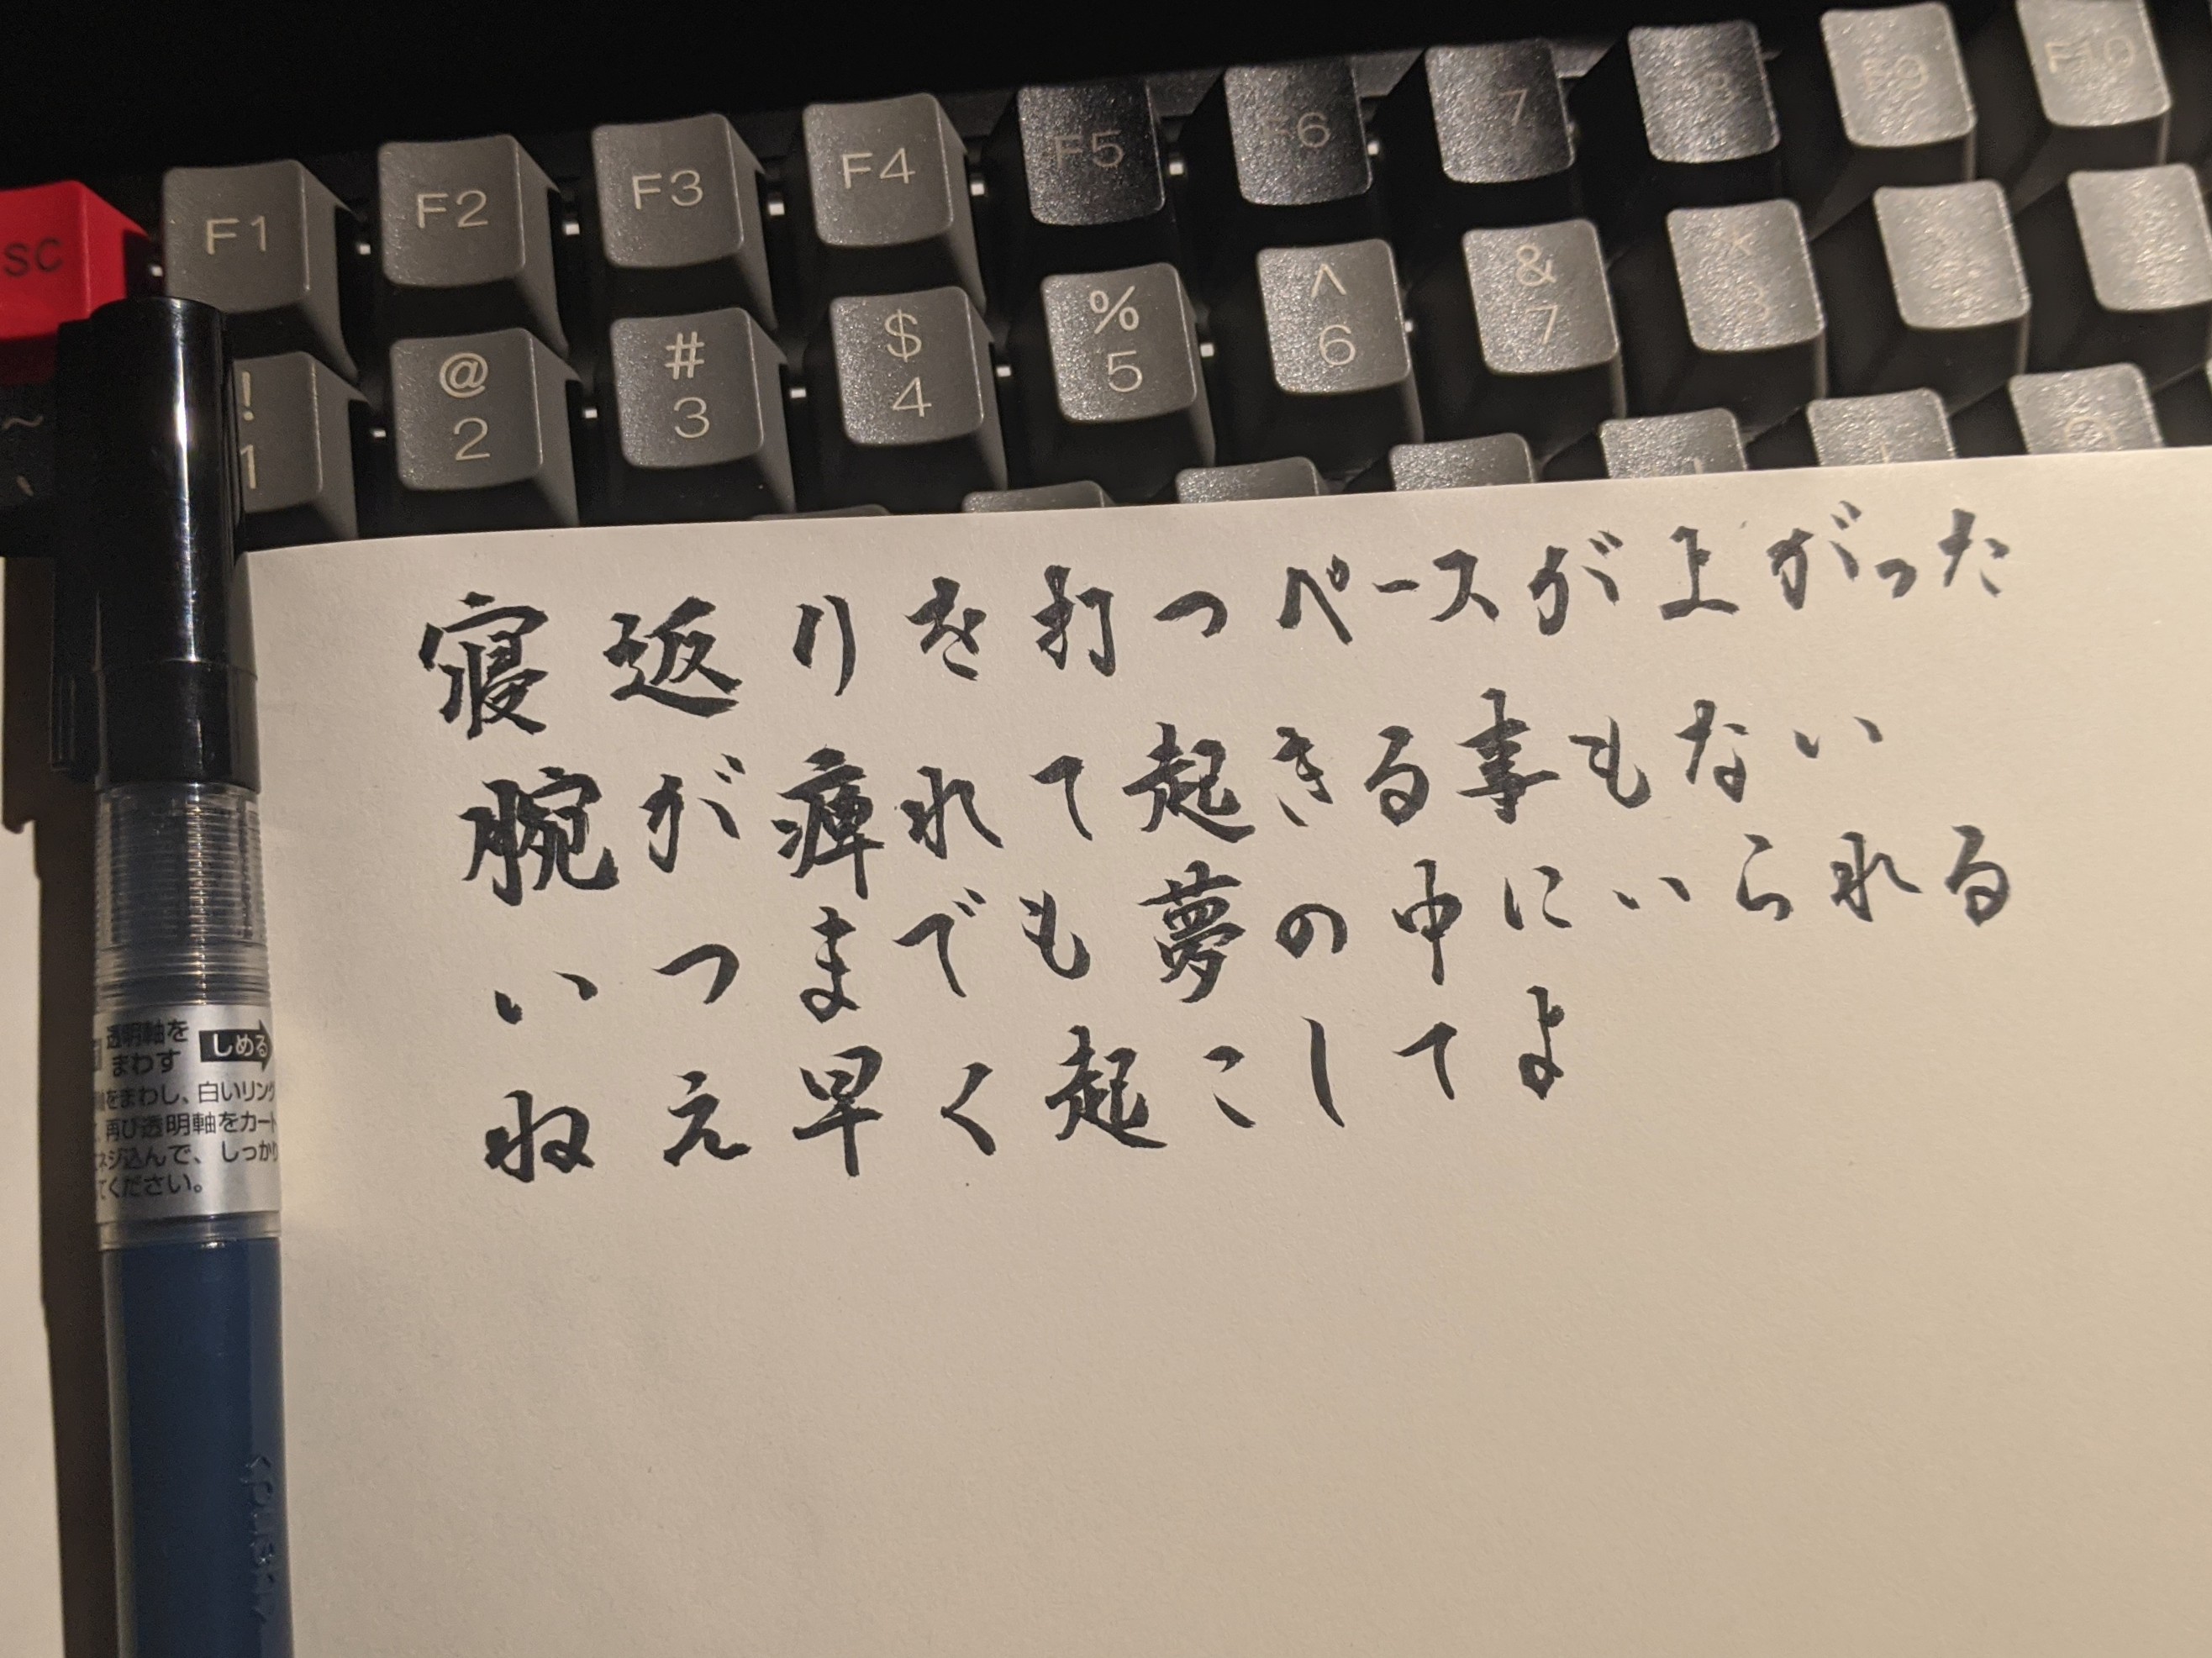 SC F1 F2 F3 F4 F5 F6 7 F9 F10
! 1 @ 2 # 3 $ 4 % 5 ^ 6 & 7
寝返りを打つペースが上がった
腕が痺れて起きる事もない
いつまでも夢の中にいられる
ねえ早く起こしてよ
透明軸を
まわす
しめる
をまわし、白いリング
再び透明軸をカート
ネジ込んで、しっかり
てください。